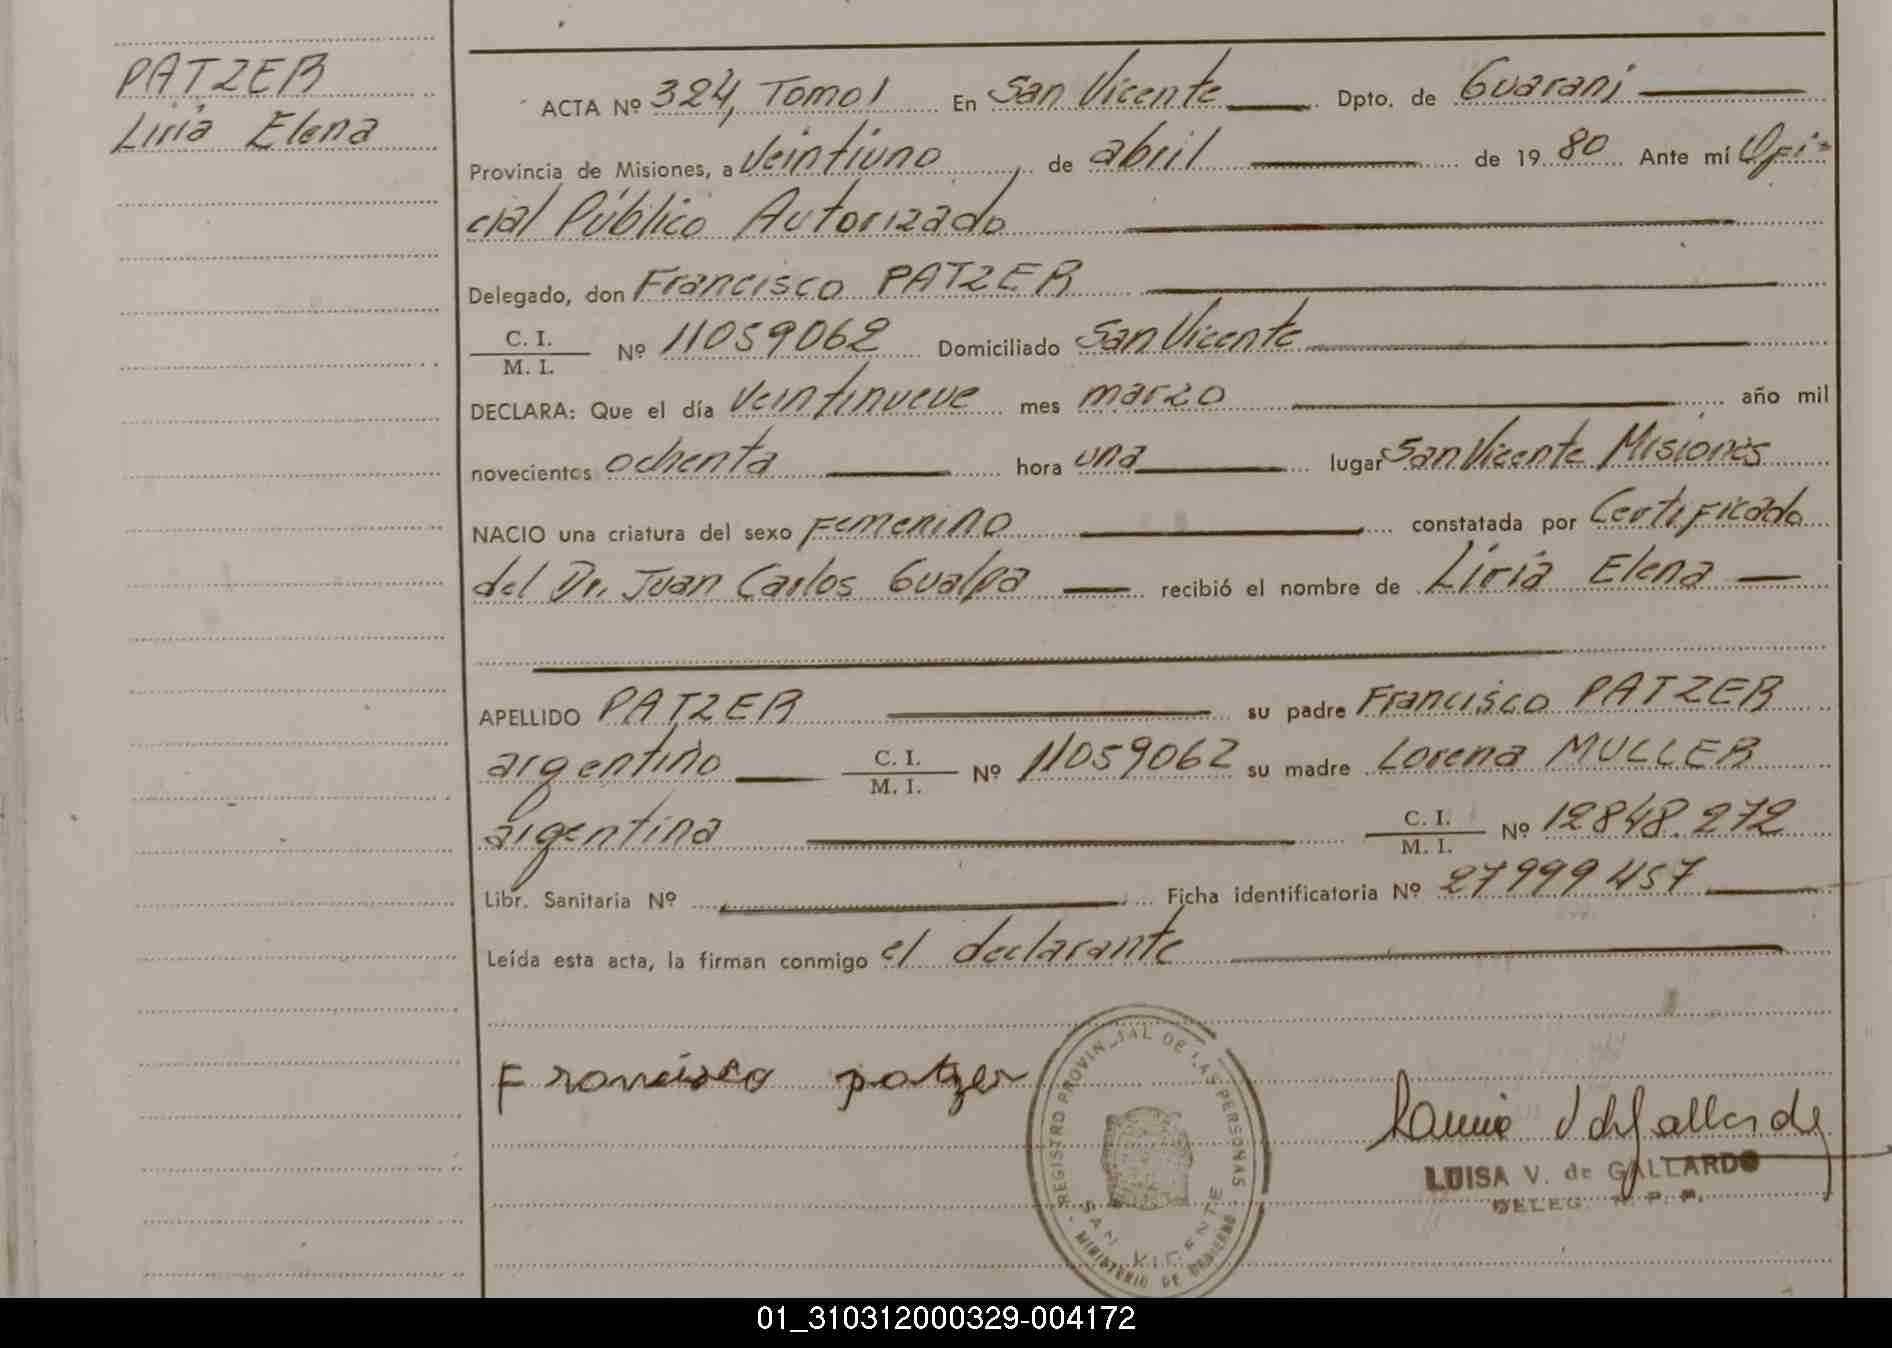 PATZER
Liria Elena
ACTA Nº 324, Tomo 1 En San Vicente Dpto. de Guaraní
Provincia de Misiones, a veintiuno de abril de 1980 Ante mí Ofi-
cial Público Autorizado
Delegado, don Francisco PATZER
C. I.
M. I. Nº 11059062 Domiciliado San Vicente
DECLARA: Que el día veintinueve mes marzo año mil
novecientos ochenta hora una lugar San Vicente Misiones
NACIO una criatura del sexo Femenino constatada por Certificado
del Dr. Juan Carlos Gualpa recibió el nombre de Liria Elena
APELLIDO PATZER su padre Francisco PATZER
argentino C. I. M. I. Nº 11059062 su madre Lorena MULLER
argentina C. I. M. I. Nº 12848.272
Libr. Sanitaria Nº Ficha identificatoria Nº 27999457
Leída esta acta, la firman conmigo el declarante
Francisco patzer
REGISTRO PROVINCIAL DE LAS PERSONAS
SAN VICENTE
MINISTERIO DE GOBIERNO
LUISA V. de GALLARDO
DELEG. R. P. P.
01_310312000329-004172